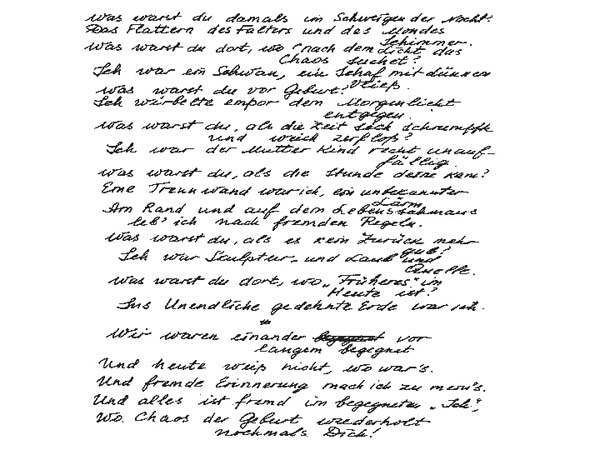 Was warst du damals im Schweigen der Nacht?
Das Flattern des Falters und des Mondes
Schimmer.
Was warst du dort, wo nach dem Licht das
Chaos suchet?
Ich war ein Schwan, ein Schaf mit dünnem
Vließ.
Was warst du vor Geburt?
Ich wirbelte empor dem Morgenlicht
entgegen.
Was warst du, als die Zeit sich schrumpfte
und weich zerfloß?
Ich war der Mutter Kind recht unauf-
fällig.
Was warst du, als die Stunde deine kam?
Eine Trennwand war ich, ein unbekannter
Lärm
Am Rand und auf dem Lebens
leb' ich nach fremden Regeln.
Was warst du, als es kein Zurück mehr
gab?
Ich war Skulptur und Laub und
Quelle.
Was warst du dort, wo „Früheres" im
Heute ist?
Ins Unendliche gedehnte Erde war ich.
*
Wir waren einander vor
langem begegnet
Und heute weiß nicht, wo war's.
Und fremde Erinnerung mach ich zu meru's.
Und alles ist fremd im begegneten „Ich",
Wo Chaos der Geburt wiederholt
nochmals Dich!